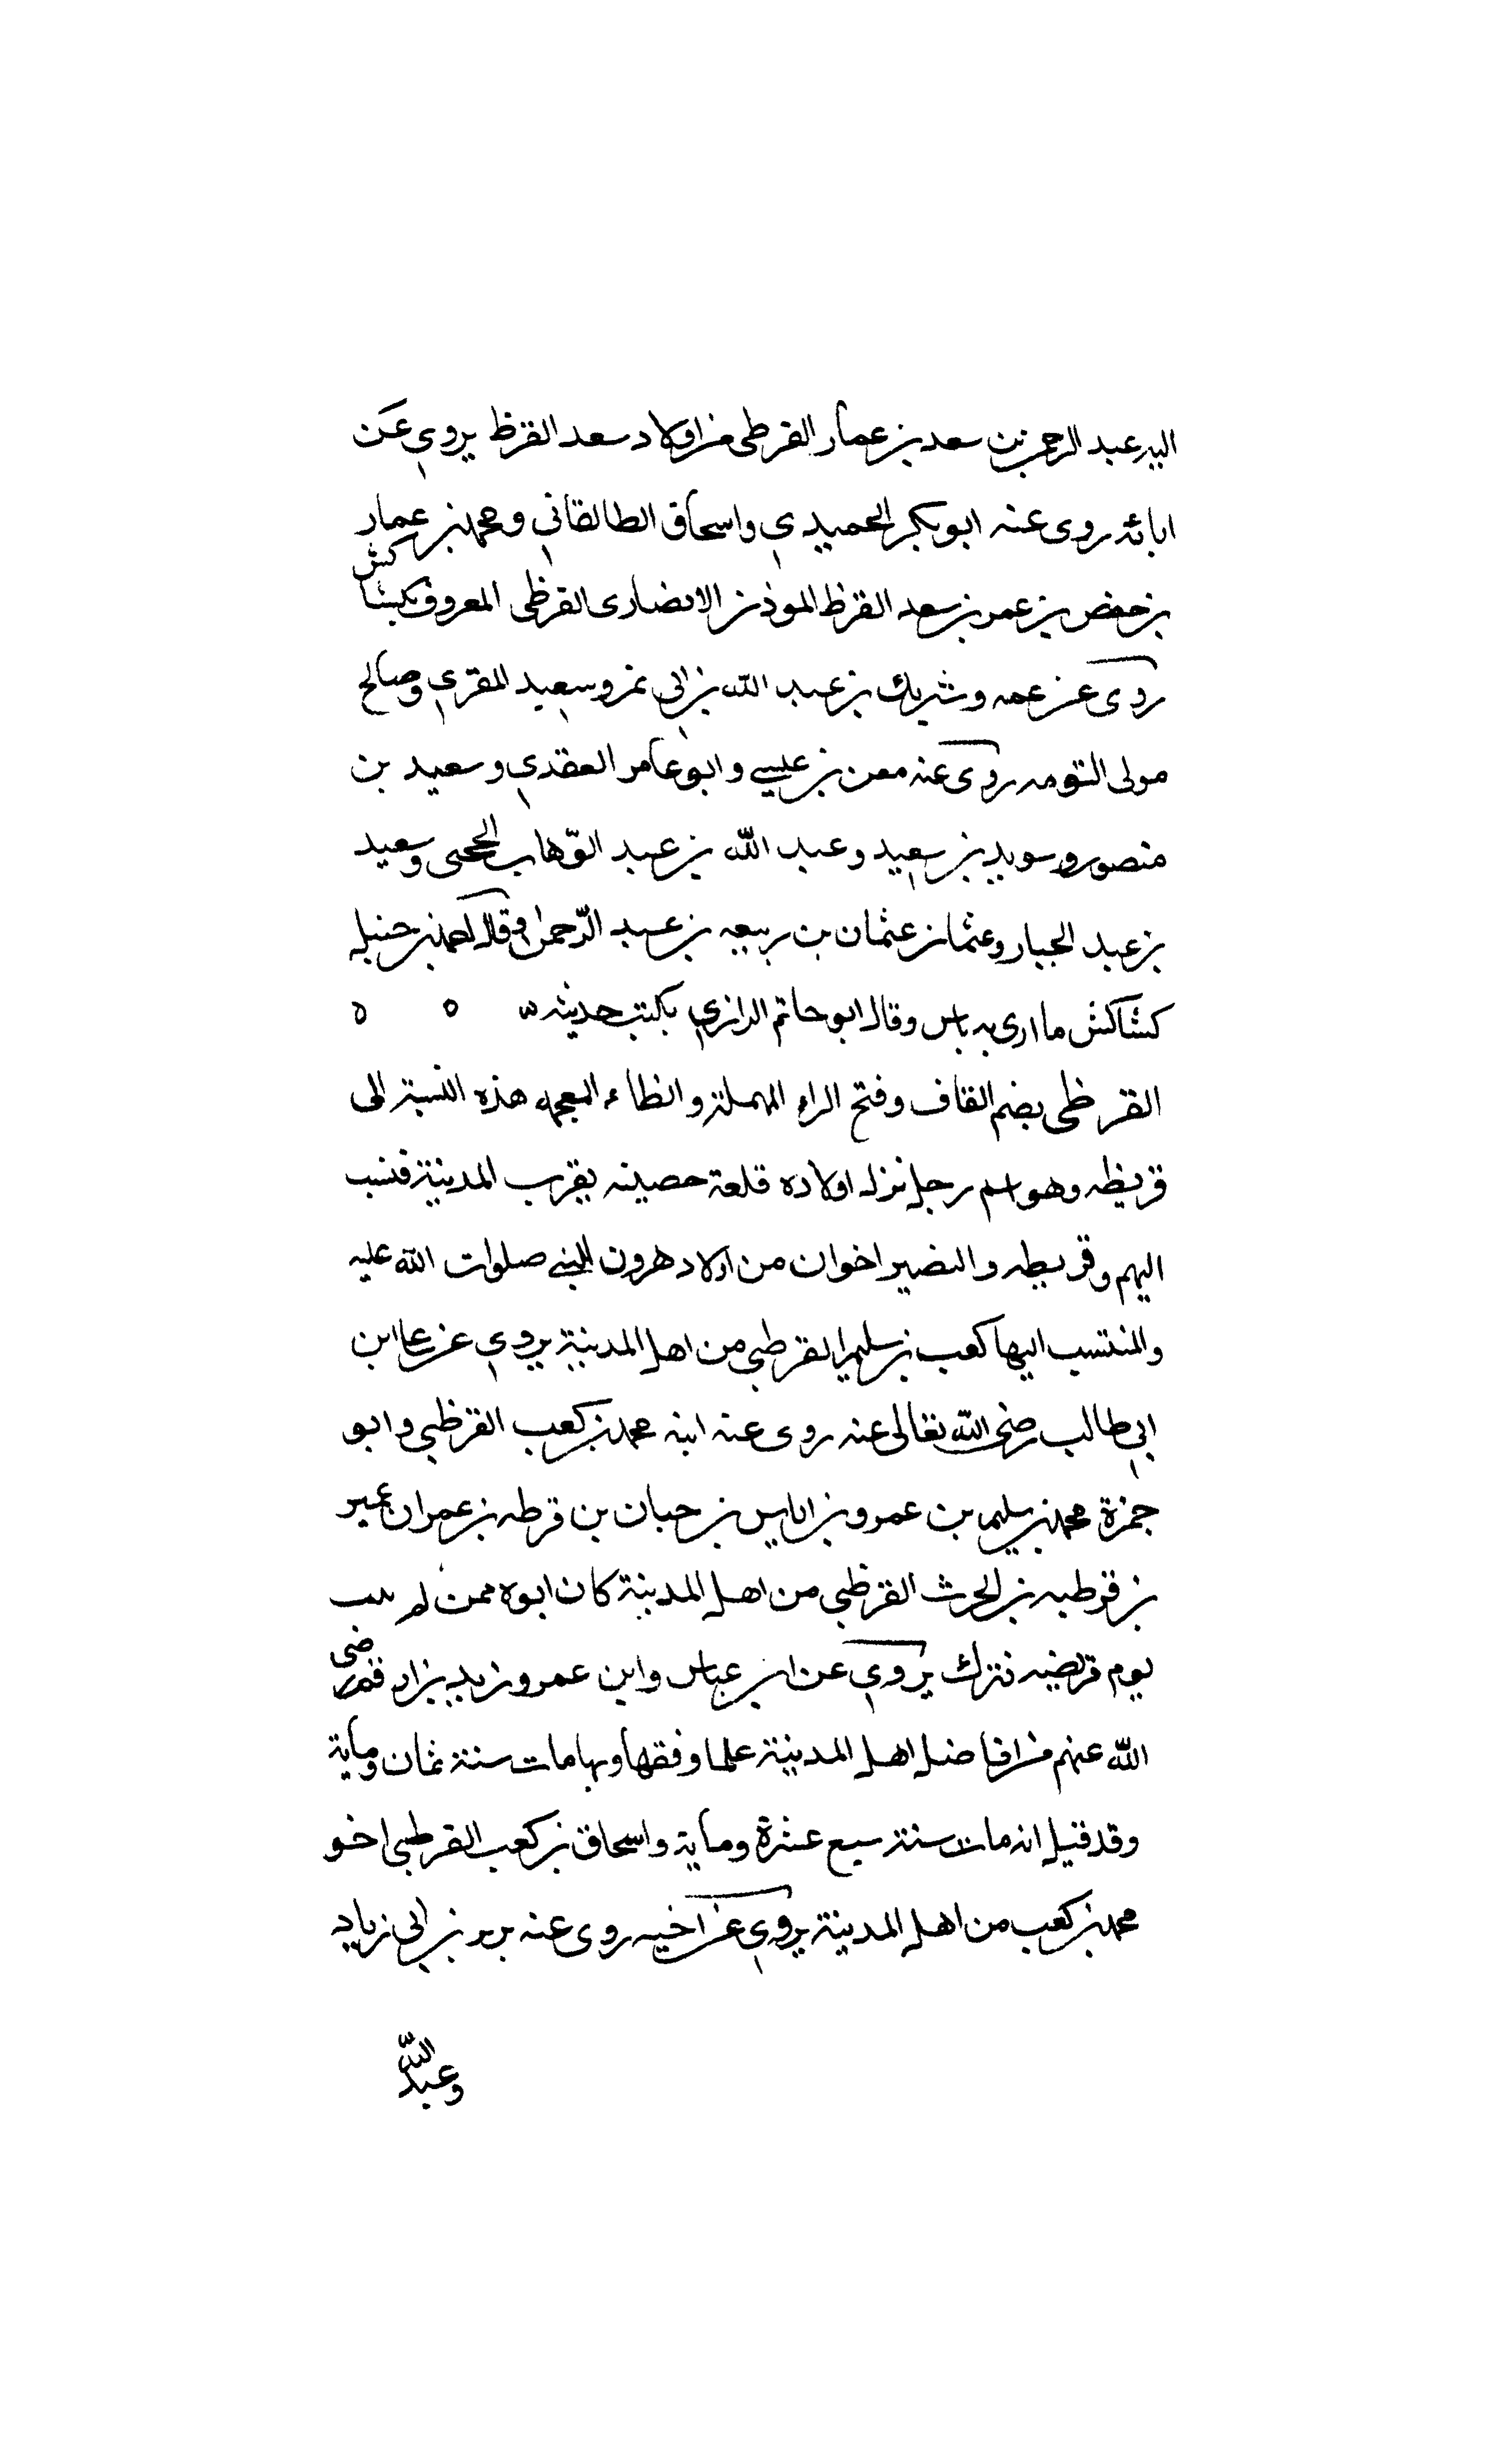 اليه عبد الرحمن بن سعد بن عمار القرظى من اولاد سعد القرظ يروي عن
ابائه روى عنه ابو بكر الحميدي واسحاق الطالقاني ومحمد بن عمار
بن حفص بن عمر بن سعد القرظ الموذن الانصارى القرظى المعروف بكشاكش
روى عن عمه وشريك بن عبد الله بن ابى نمر وسعيد المقري وصالح
مولى التومه روى عنه معن بن عيسى وابو عامر العقدي وسعيد بن
منصور وسويد بن سعيد وعبد الله بن عبد الوهاب الحجى وسعيد
بن عبد الجبار وعثمان عثمان بن ربيعه بن عبد الرحمن وقال احمد بن حنبل
كشاكش ما ارى به باس وقال ابو حاتم الرازي يكتب حديثه ه ه
القرظى بضم القاف وفتح الراء المهملة والظاء المعجمه هذه النسبة الى
قريظه وهو اسم رجل نزل اولاده قلعة حصينه بقرب المدينة فنسب
اليهم وقريظه والنضير اخوان من اولاد هرون النبى صلوات الله عليه
والمنتسب اليها كعب بن سليم القرظي من اهل المدينة يروي عن على ابن
ابي طالب رضى الله تعالى عنه روى عنه ابنه محمد بن كعب القرظي وابو
حمزة محمد بن سليم بن عمرو بن اياس بن حبان بن قرظه بن عمران عمير
بن قرظيه بن الحرث القرظي من اهل المدينة كان ابوه ممن لم
يوم قريضه فترك يروي عن ابن عباس وابن عمر وزيد بن ارقم رضى
الله عنهم من افاضل اهل المدينة علما وفقها وبها مات سنة ثمان وماية
وقد قيل انه مات سنة سبع عشرة وماية واسحاق بن كعب القرظي اخو
محمد بن كعب من اهل المدينة يروي عن اخيه روى عنه يزيد بن ابى زياد
وعبد الله